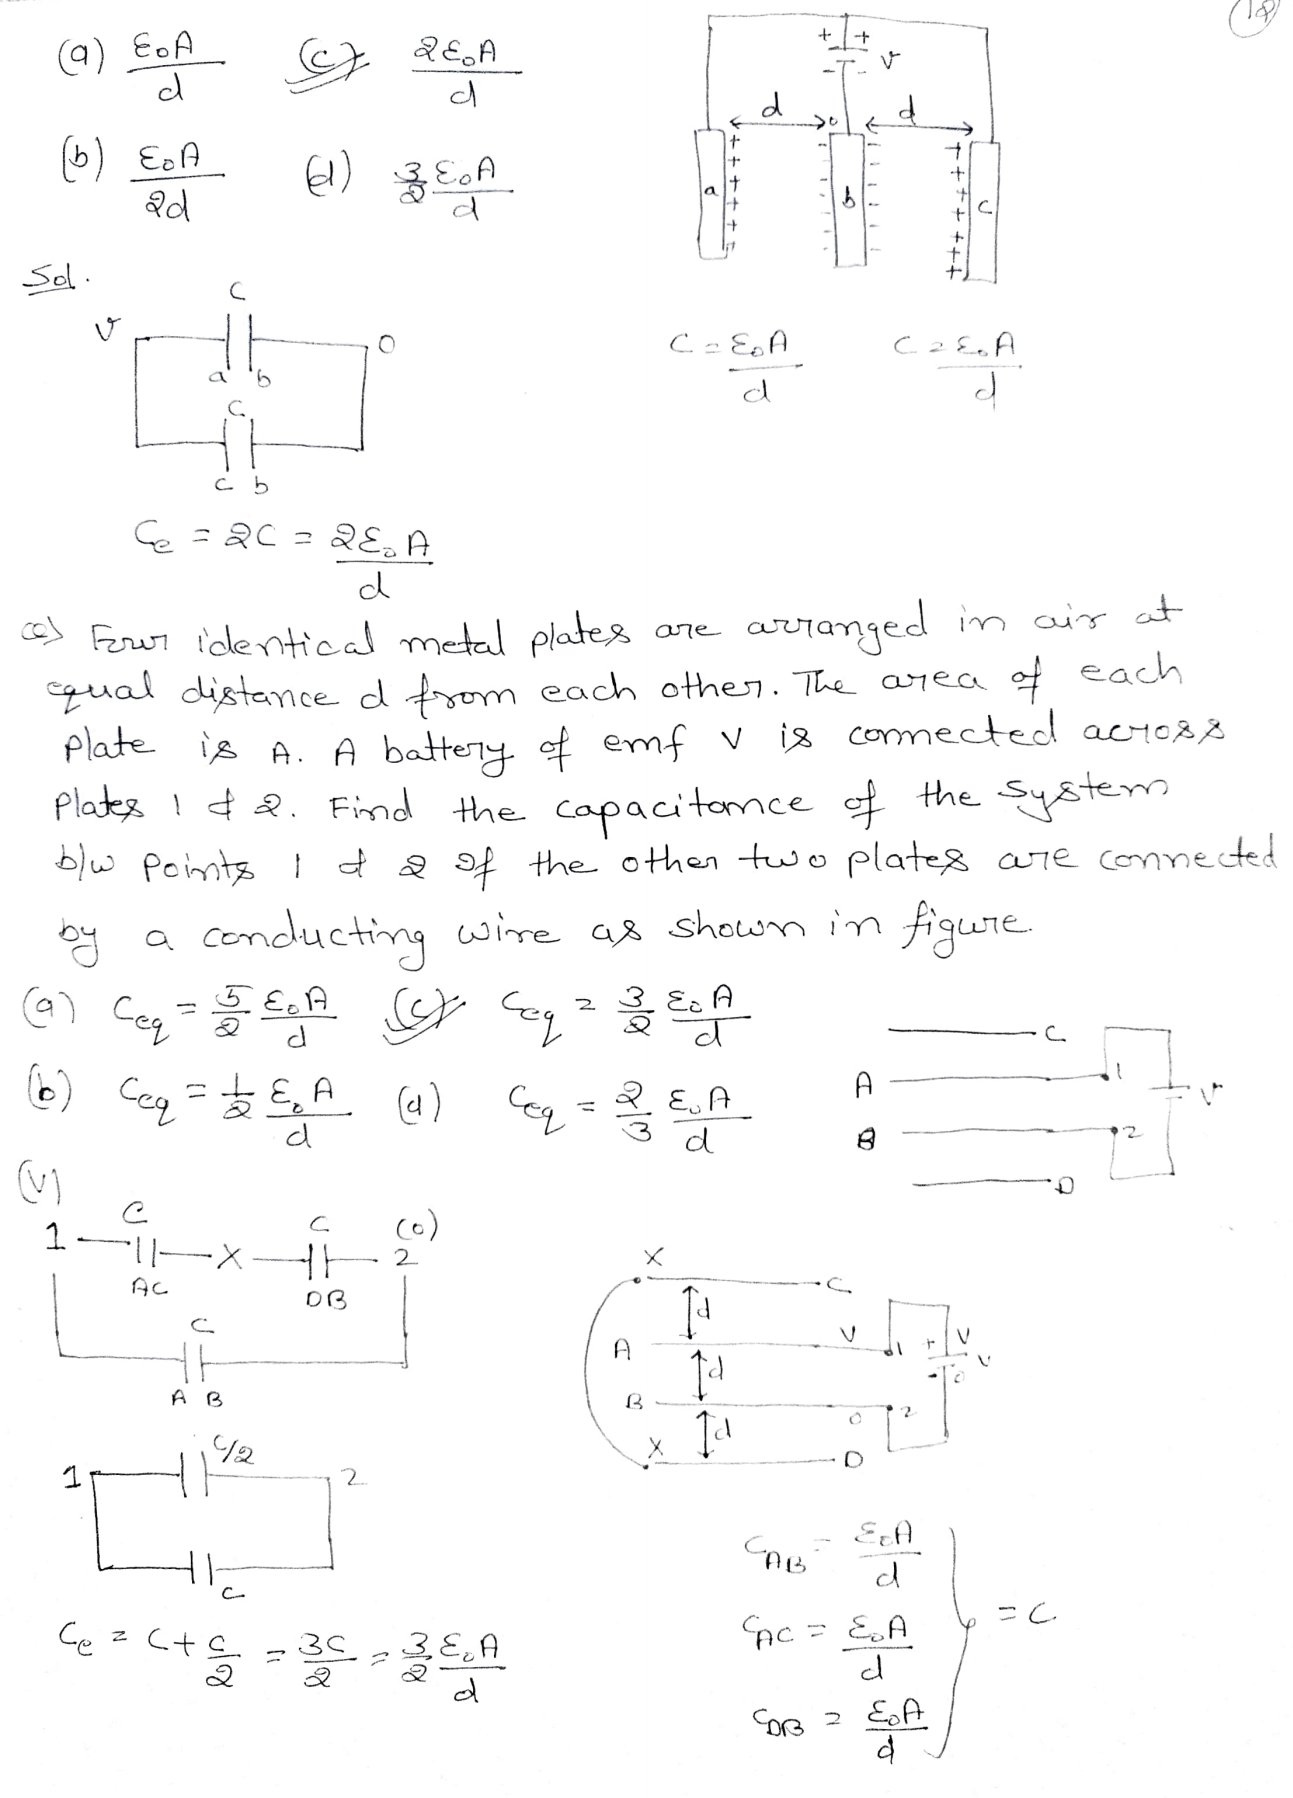 18
(a) ε₀A/d (c) 2ε₀A/d
(b) ε₀A/2d (d) 3/2 ε₀A/d
+ + V
- -
d 0 d
a b c
Sol.
V C 0
a b
C
c b
C = ε₀A/d C = ε₀A/d
Ce = 2C = 2ε₀A/d
Q) Four identical metal plates are arranged in air at
equal distance d from each other. The area of each
plate is A. A battery of emf V is connected across
plates 1 & 2. Find the capacitance of the system
b/w points 1 & 2 If the other two plates are connected
by a conducting wire as shown in figure.
(a) Ceq = 5/2 ε₀A/d (c) Ceq = 3/2 ε₀A/d
(b) Ceq = 1/2 ε₀A/d (d) Ceq = 2/3 ε₀A/d
C
A 1 V
B 2
D
(V) C C (0)
1 X 2
AC DB
C
A B
X C
d
A V 1 + V V
d
B 0 2 - 0
d
X D
C/2
1 2
C
Ce = C + C/2 = 3C/2 = 3/2 ε₀A/d
C_AB = ε₀A/d
C_AC = ε₀A/d = C
C_DB = ε₀A/d